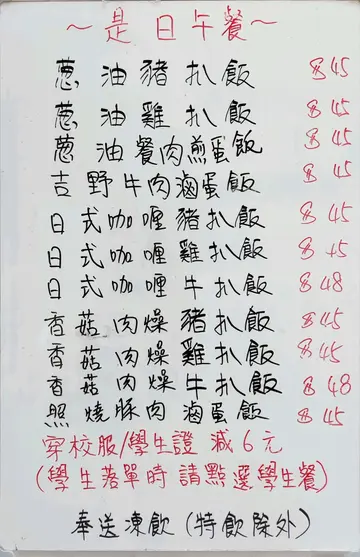 ～是日午餐～
蔥油豬扒飯 $45
蔥油雞扒飯 $45
蔥油餐肉煎蛋飯 $45
吉野牛肉滷蛋飯 $45
日式咖喱豬扒飯 $45
日式咖喱雞扒飯 $45
日式咖喱牛扒飯 $48
香菇肉燥豬扒飯 $45
香菇肉燥雞扒飯 $45
香菇肉燥牛扒飯 $48
照燒豚肉滷蛋飯 $45
穿校服/學生證 減6元
(學生落單時請點選學生餐)
奉送凍飲 (特飲除外)